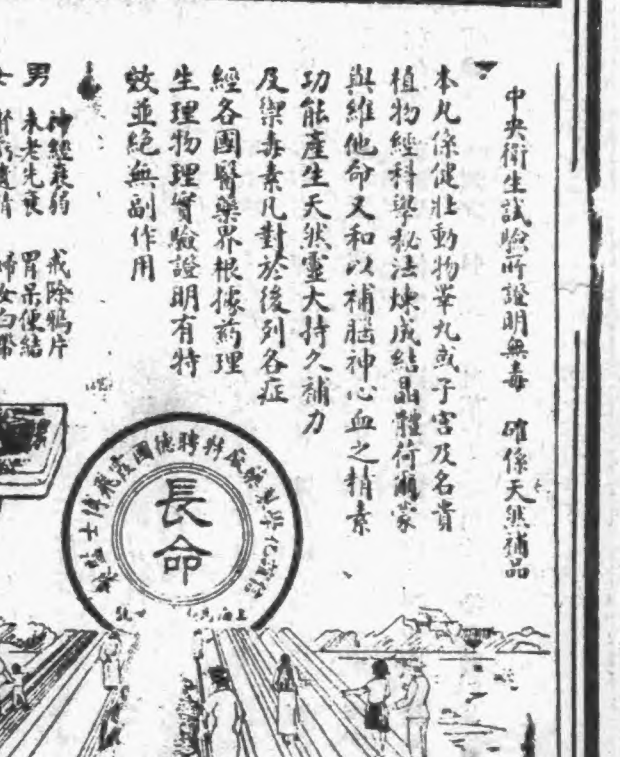 中央衛生試驗所證明無毒 確係天然補品
本丸係健壯動物睾丸或子宮及名貴
植物經科學秘法煉成結晶體荷爾蒙
與維他命又和以補腦神心血之精素
功能產生天然靈大持久補力
及禦毒素凡對於後列各症
經各國醫藥界根據药理
生理物理實驗證明有特
效並絕無副作用
神經衰弱 戒除鴉片
男 未老先衰 胃呆便結
婦女白帶
化學製藥廠特聘德國
長命
上海